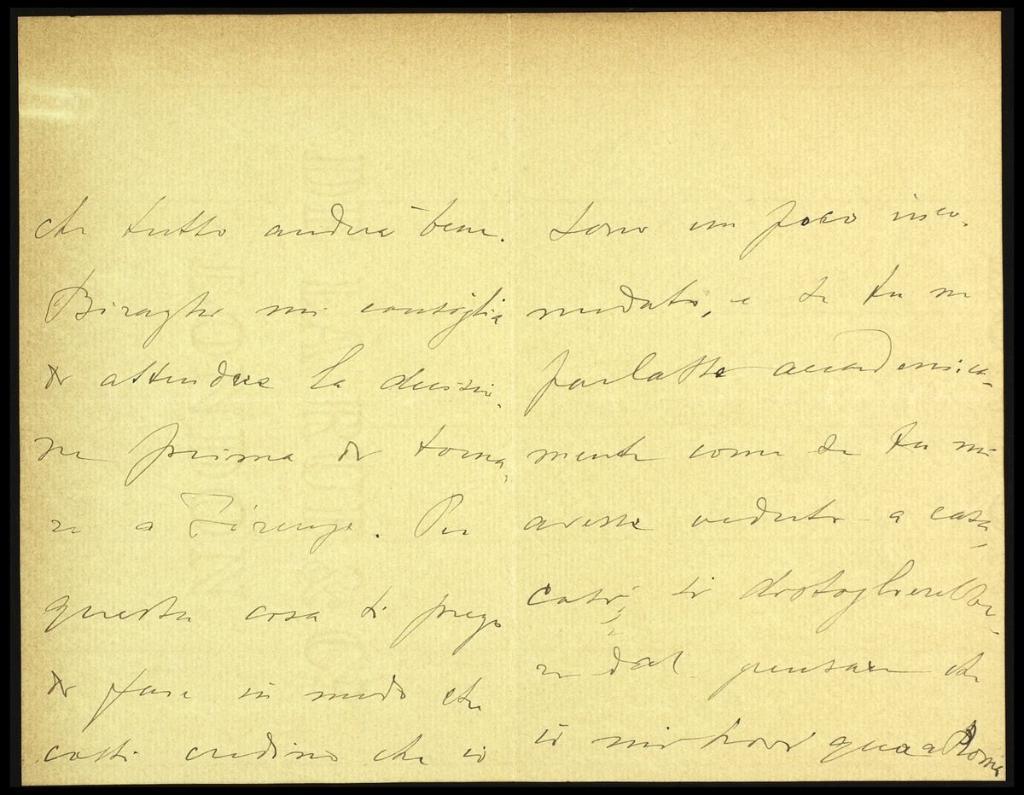 che tutto andrà bene.
Biraghi mi consiglia
di attendere la decisio-
ne prima di torna-
re a Firenze. Per
questa cosa ti prego
di fare in modo che
costì credino che io
sono un poco inco-
modato, e se tu ne
parlaste accademica-
mente come se tu mi
avesse veduto a casa,
così, si
re dal pensare che
io mi trovi qua a Roma